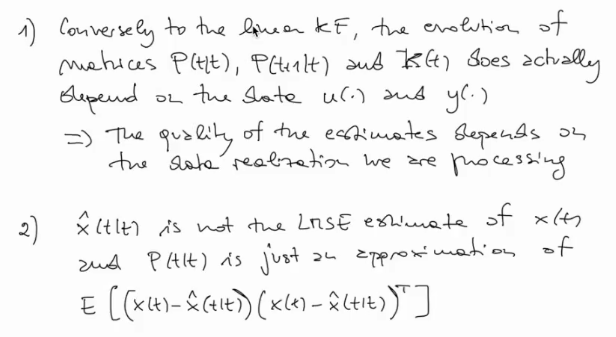 1) Conversely to the linear KF, the evolution of
matrices P(t|t), P(t+1|t) and K(t) does actually
depend on the data u(·) and y(·)
=> The quality of the estimates depends on
the data realization we are processing
2) x̂(t|t) is not the LMSE estimate of x(t)
and P(t|t) is just an approximation of
E[(x(t)-x̂(t|t))(x(t)-x̂(t|t))ᵀ]